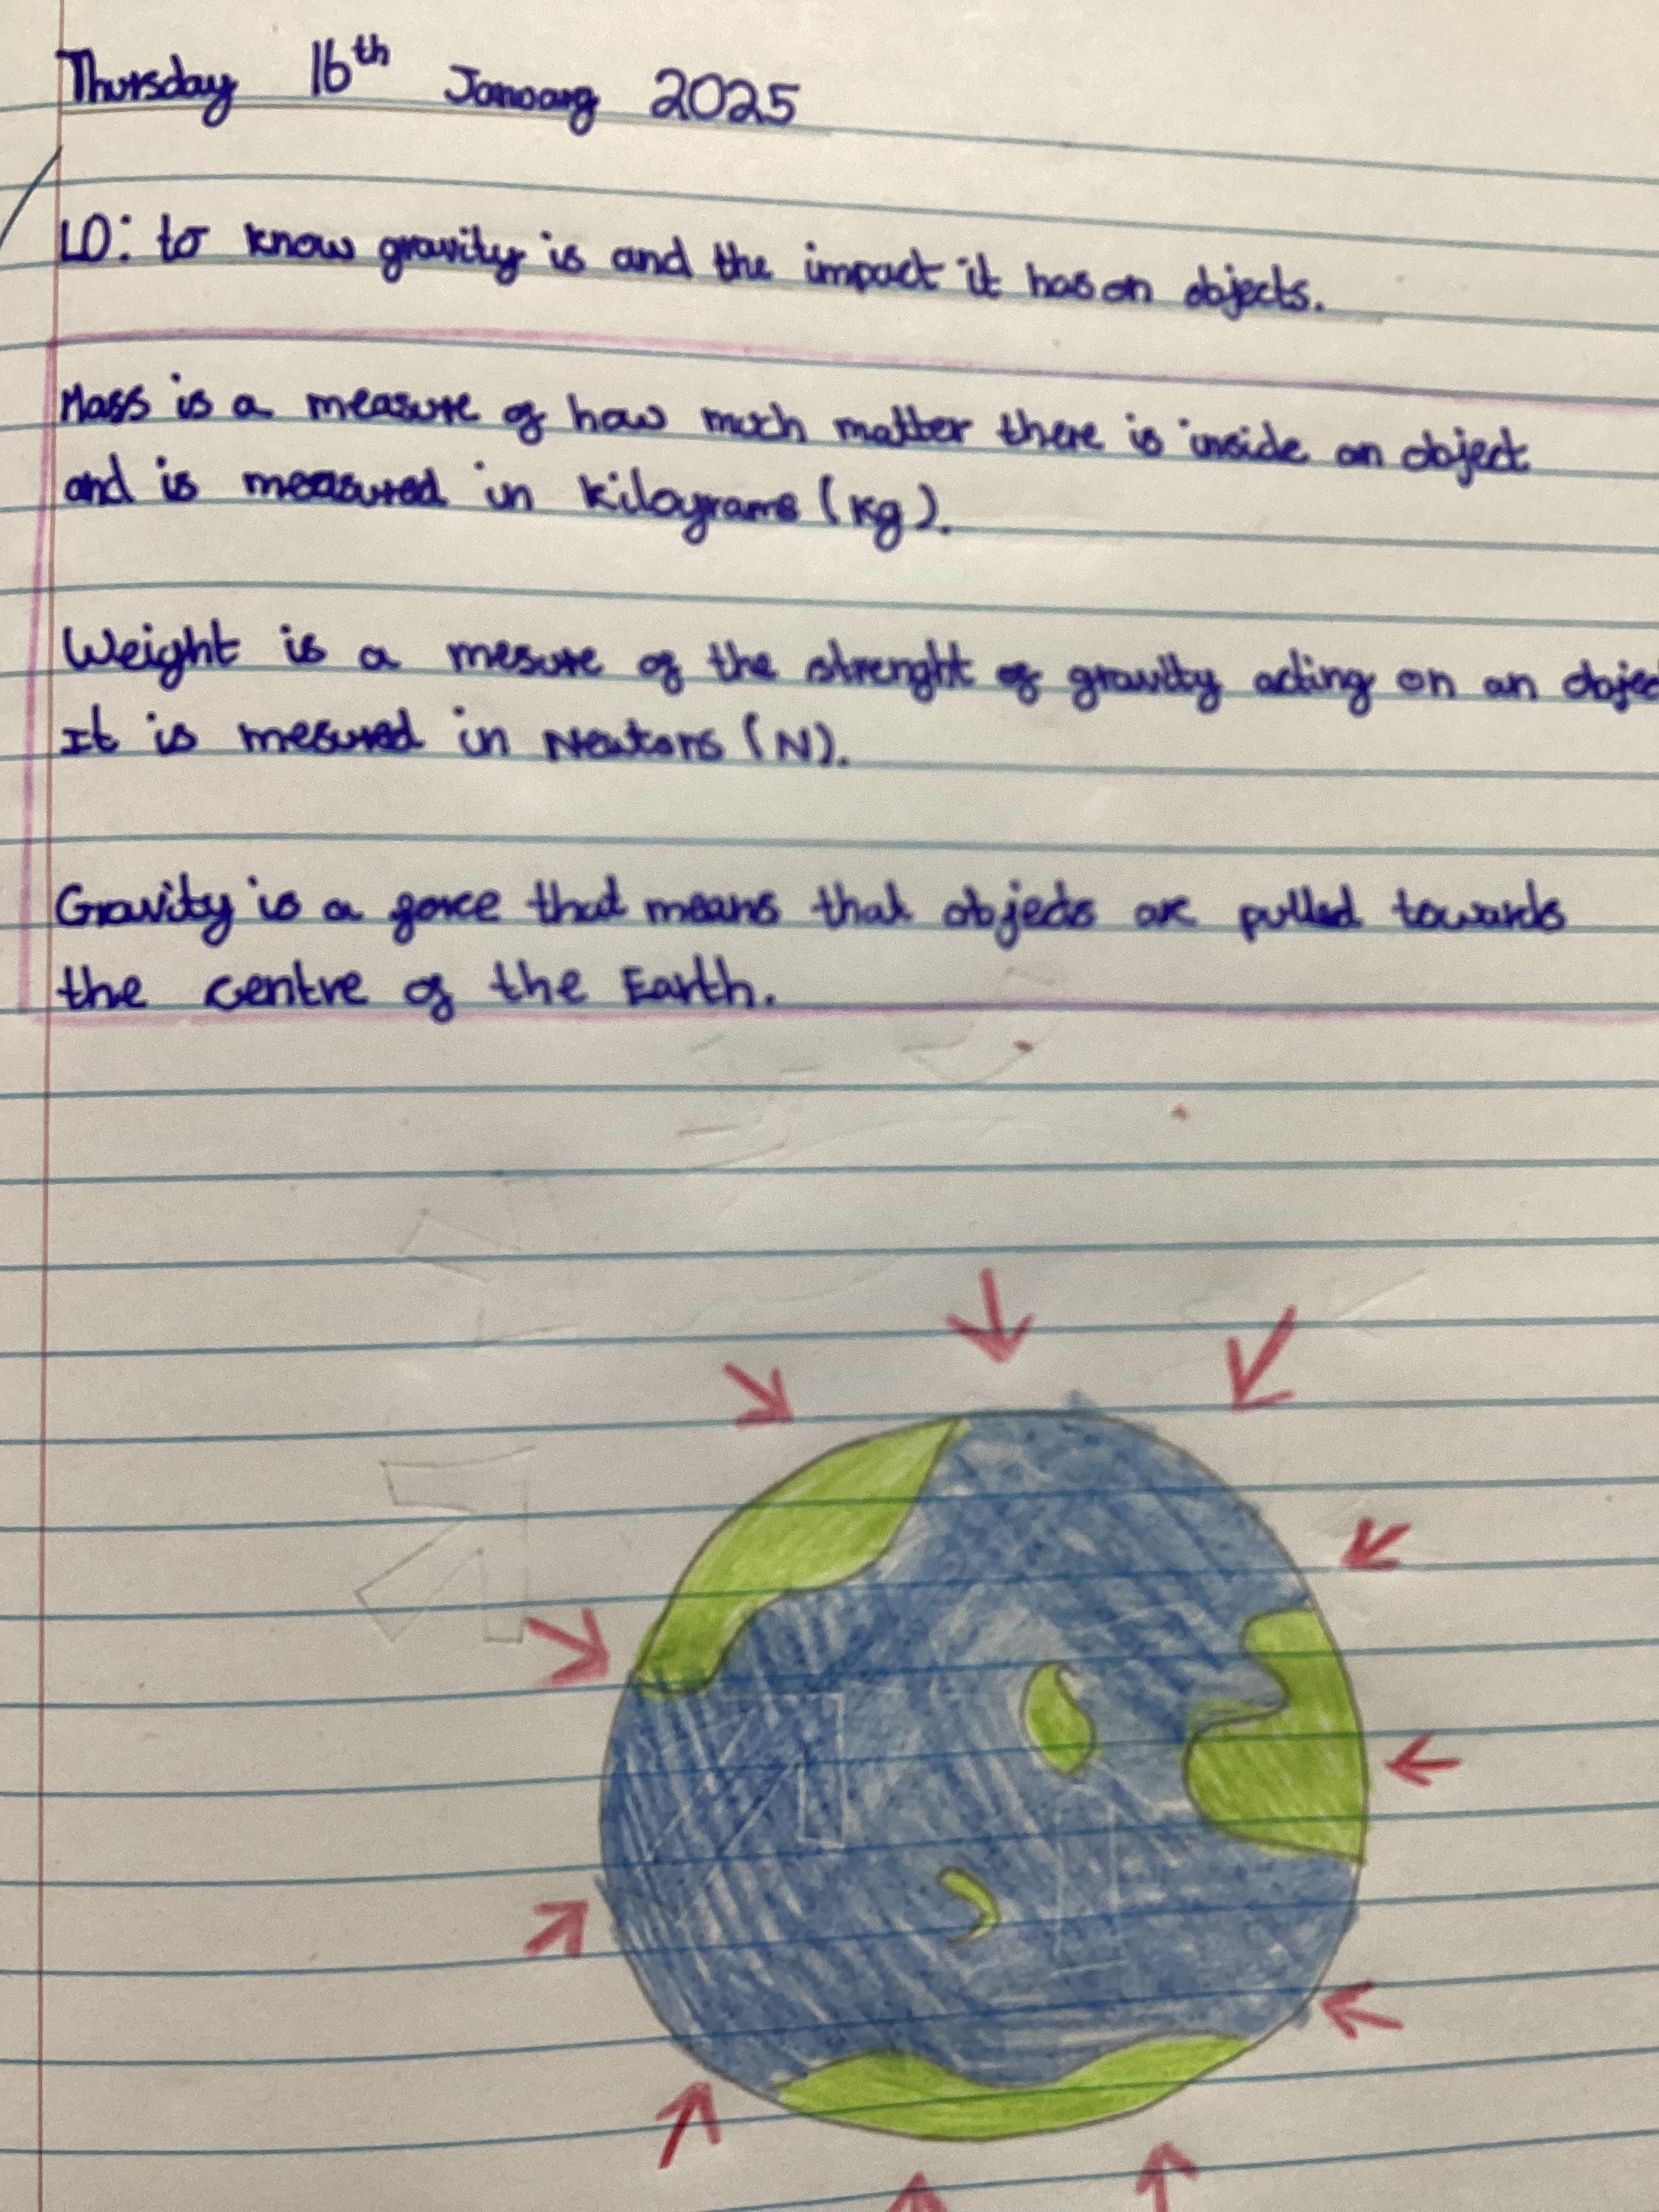 Thursday 16th January 2025
LO: to know gravity is and the impact it has on objects.
Mass is a measure of how much matter there is inside an object
and is measured in kilograms (kg).
Weight is a mesure of the strenght of gravity acting on an objec
It is mesured in Newtons (N).
Gravity is a force that means that objects are pulled towards
the centre of the Earth.